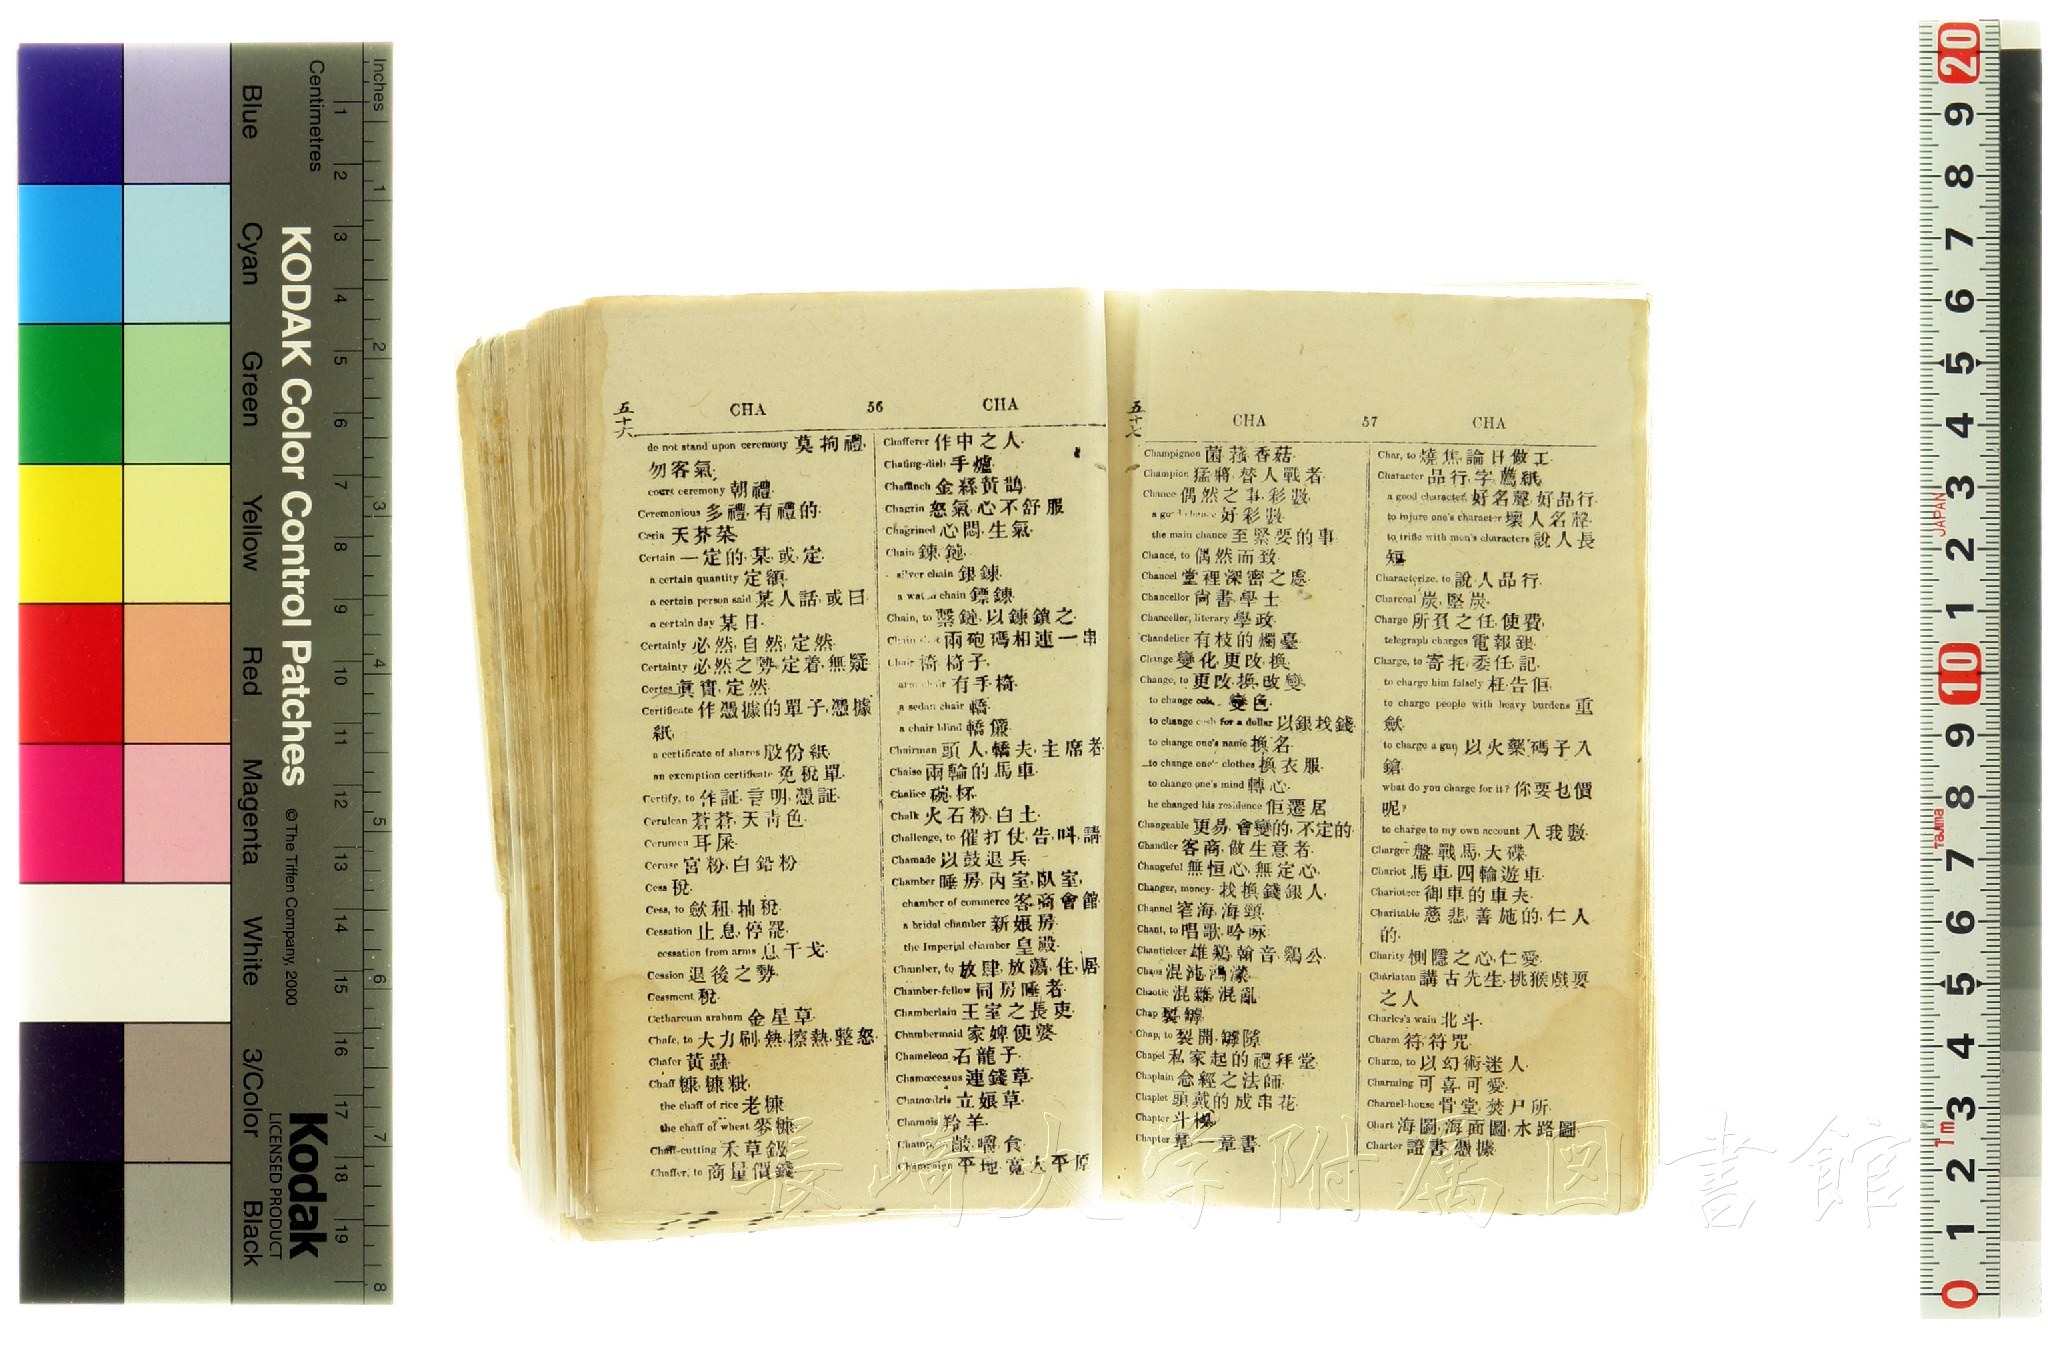 Inches
Centimetres
Blue
Cyan
Green
Yellow
Red
Magenta
White
3/Color
Black
KODAK Color Control Patches
© The Tiffen Company, 2000
Kodak
LICENSED PRODUCT
五十六
CHA 56 CHA
do not stand upon ceremony 莫拘禮,
勿客氣.
court ceremony 朝禮.
Ceremonious 多禮, 有禮的.
Ceria 天芥菜.
Certain 一定的, 某, 或, 定.
a certain quantity 定額.
a certain person said 某人話, 或曰
a certain day 某日.
Certainly 必然, 自然, 定然.
Certainty 必然之勢, 定着, 無疑.
Certes 眞實, 定然.
Certificate 作憑據的單子, 憑據
紙.
a certificate of shares 股份紙.
an exemption certificate 免稅單.
Certify, to 作証, 言明, 憑証.
Cerulean 蒼蒼, 天靑色.
Cerumen 耳屎.
Ceruse 宮粉, 白鉛粉
Cess 稅.
Cess, to 歛租, 抽稅.
Cessation 止息, 停罷.
cessation from arms 息干戈.
Cession 退後之勢.
Cessment 稅.
Cethareum arabum 金星草.
Chafe, to 大力刷, 熱, 擦熱, 整怒.
Chafer 黃蟲.
Chaff 糠, 糠粃.
the chaff of rice 老糠.
the chaff of wheat 麥糠.
Chaff-cutting 禾草鈒
Chaffer, to 商量價錢
Chafferer 作中之人.
Chafing-dish 手爐.
Chaffinch 金絲黃鵲.
Chagrin 怒氣, 心不舒服
Chagrined 心悶, 生氣.
Chain 鍊, 鏈.
silver chain 銀鍊.
a watch chain 鏢鍊.
Chain, to 繫鏈, 以鍊鎖之.
Chain shot 兩砲碼相連一串
Chair 椅, 椅子.
arm chair 有手椅.
a sedan chair 轎.
a chair blind 轎簾.
Chairman 頭人, 轎夫, 主席者
Chaise 兩輪的馬車.
Chalice 碗, 杯.
Chalk 火石粉, 白土.
Challenge, to 催打仗, 告, 叫, 請
Chamade 以鼓退兵.
Chamber 睡房, 內室, 臥室,
chamber of commerce 客商會館
a bridal chamber 新娘房.
the Imperial chamber 皇殿.
Chamber, to 放肆, 放蕩, 住, 居
Chamber-fellow 同房睡者.
Chamberlain 王室之長吏.
Chambermaid 家婢, 使婆.
Chameleon 石龍子.
Chamœcessus 連錢草.
Chamœdris 立娘草.
Chamois 羚羊.
Champ, 齩, 嚼, 食.
Champaign 平地, 寬大平原
五十七
CHA 57 CHA
Champignon 菌, 蕵, 香菇.
Champion 猛將, 替人戰者.
Chance 偶然之事, 彩數.
a good chance 好彩數.
the main chance 至緊要的事
Chance, to 偶然而致.
Chancel 堂裡深密之處.
Chancellor 尙書, 學士.
Chancellor, literary 學政.
Chandelier 有枝的燭臺.
Change 變化, 更改, 換.
Change, to 更改, 換, 改變.
to change color 變色.
to change cash for a dollar 以銀找錢.
to change one's name 換名.
to change one's clothes 換衣服.
to change one's mind 轉心.
he changed his residence 佢遷居
Changeable 更易, 會變的, 不定的.
Chandler 客商, 做生意者.
Changeful 無恒心, 無定心.
Changer, money- 找換錢銀人.
Channel 窄海, 海頸.
Chant, to 唱歌, 吟咏.
Chanticleer 雄鷄, 翰音, 鷄公.
Chaos 混沌, 鴻濛.
Chaotic 混雜, 混亂.
Chap 裂罅.
Chap, to 裂開, 罅隙.
Chapel 私家起的禮拜堂.
Chaplain 念經之法師.
Chaplet 頭戴的成串花.
Chapter 斗拱.
Chapter 章, 一章書.
Char, to 燒焦, 論日做工.
Character 品行, 字, 薦紙.
a good character, 好名聲, 好品行.
to injure one's character 壞人名聲.
to trifle with men's characters 說人長
短.
Characterize, to 說人品行.
Charcoal 炭, 堅炭.
Charge 所負之任, 使費,
telegraph charges 電報銀.
Charge, to 寄托, 委任, 記.
to charge him falsely 枉告佢.
to charge people with heavy burdens 重
歛.
to charge a gun, 以火藥碼子入
鎗.
what do you charge for it? 你要乜價
呢?
to charge to my own account 入我數.
Charger 盤, 戰馬, 大碟.
Chariot 馬車, 四輪遊車.
Charioteer 御車的, 車夫.
Charitable 慈悲, 善施的, 仁人
的.
Charity 惻隱之心, 仁愛.
Charlatan 講古先生, 挑猴戲耍
之人
Charles's wain 北斗.
Charm 符, 符咒.
Charm, to 以幻術迷人.
Charming 可喜, 可愛.
Charnel-house 骨堂, 焚尸所.
Chart 海圖, 海面圖, 水路圖
Charter 證書, 憑據.
長崎大学附属図書館
JAPAN
Tajima
1m